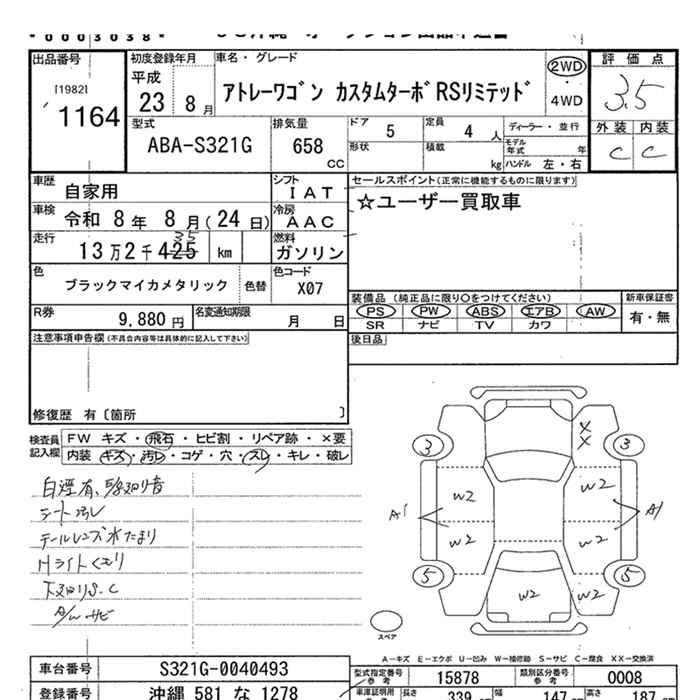 0003038
出品番号
[1982]
1164
初度登録年月
平成
23 8 月
車名・グレード
アトレーワゴン カスタムターボRSリミテッド
2WD
・
4WD
評価点
3.5
外装 内装
C C
型式
ABA-S321G
排気量
658
CC
ドア 5
定員 4 人
ディーラー・並行
形状
積載 kg
モデル年式 年
ハンドル 左・右
車歴 自家用
シフト IAT
車検 令和 8 年 8 月(24 日)
冷房 AAC
走行 13万2千425 km
35
燃料 ガソリン
色 ブラックマイカメタリック
色替
色コード X07
R券 9,880 円
名変通知期限 月 日
セールスポイント(正常に機能するものに限ります)
☆ユーザー買取車
装備品 (純正品に限り○をつけてください)
新車保証書
PS PW ABS エアB AW
有・無
SR ナビ TV カワ
後日品
注意事項申告欄(不具合内容等は具体的に記入して下さい)
修復歴 有〔箇所 〕
検査員記入欄
FW キズ・飛石・ヒビ割・リペア跡・×要
内装 キズ・汚れ・コゲ・穴・スレ・キレ・破レ
シート汚レ
テールレンズ水たまり
Hライトくもり
下廻りS.C
A/Wサビ
3
X
X
3
W2
W2
A1
A1
W2
W2
5
5
W2
W2
スペア
A-キズ E-エクボ U-凹み W-補修跡 S-サビ C-腐食 XX-交換済
車台番号 S321G-0040493
登録番号 沖縄 581 な 1278
型式指定番号
参考
15878
類別区分番号
参考
0008
車庫証明用
長さ 339
幅 147
高さ 187